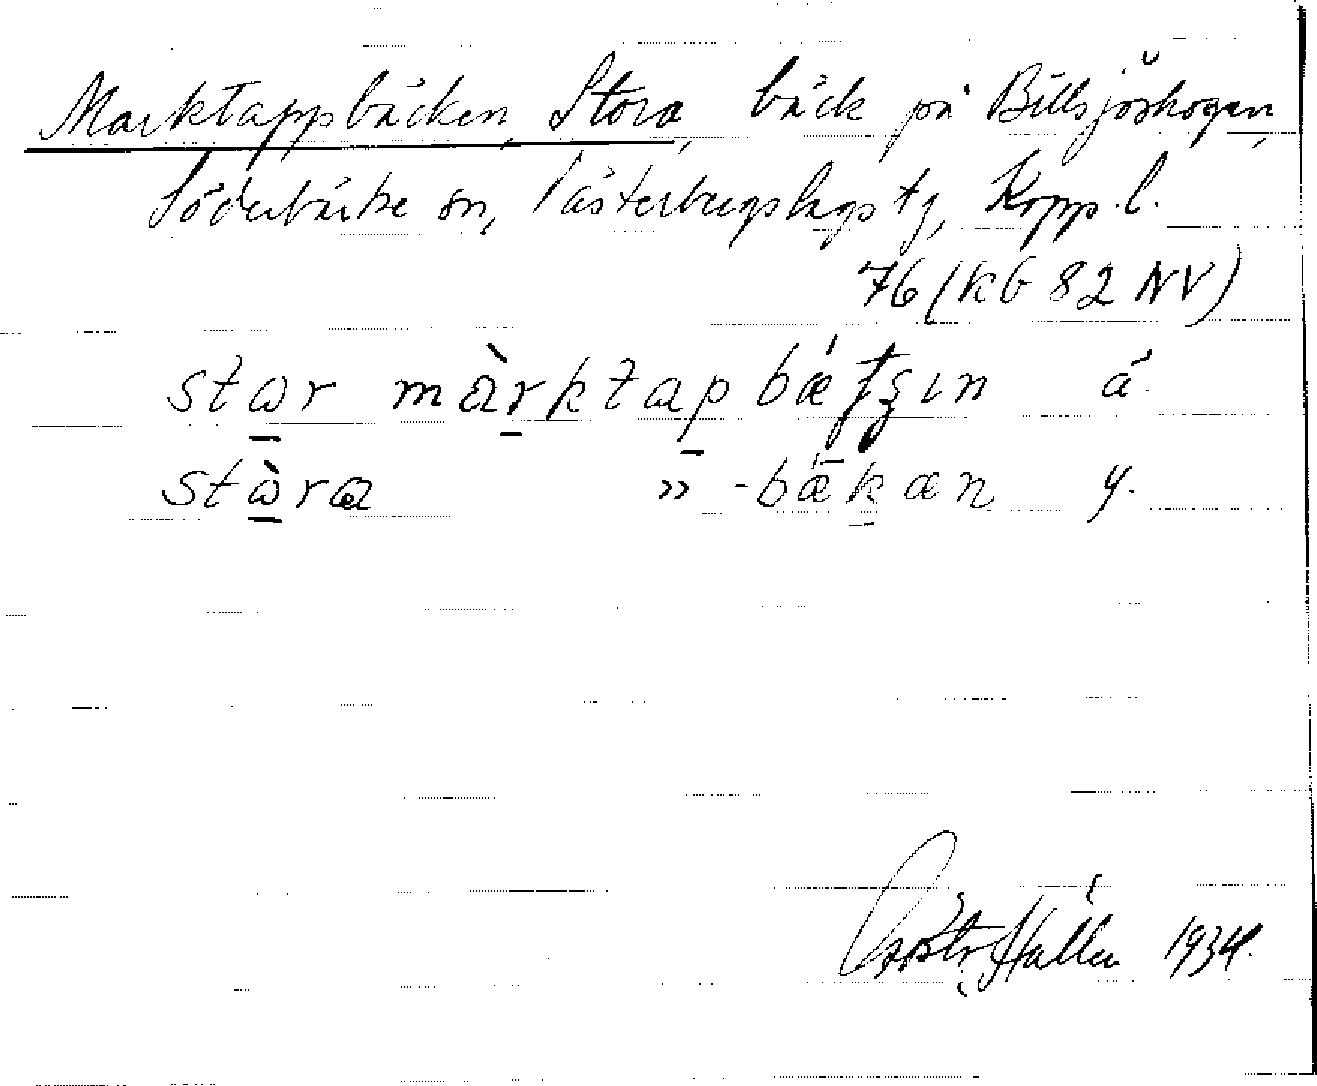 Marktappsbäcken, Stora, bäck på Billsjöskogen,
Söderbärke sn, Västerbergslags tg, Kopp. l.
76 (kb 82 NV)
star màrktapbǽtʂın ä.
stàra » -bǽkæn y.
Hallén 1934.